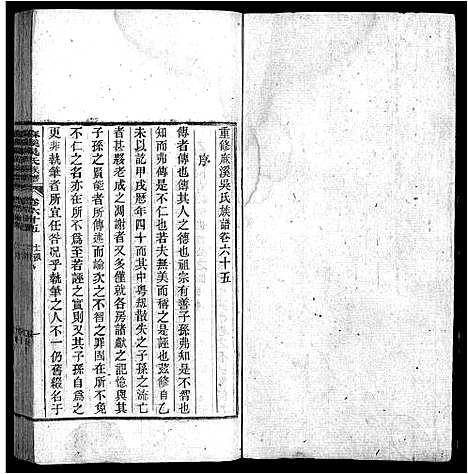 重修麻溪吳氏族譜卷六十五
序
傳者傳也傳其人之德也祖宗有善子孫弗知是不智也
弗傳是不仁也若夫無美而稱之是誣也茲修自乙
未以訖甲戌歷年四十而其中粵刼散失之子孫之流亡
者甚夥老成之凋謝者又多僅就各房諸獻之記憶與其
子孫之賢能者所傳述而論次之不智之罪固在所不免
不仁之名亦在所不爲至若誣之實則又其子孫自爲之
更非執筆者所宜任咎况乎執筆之人不一仍舊綴名于
麻溪吳氏族譜
卷六十五